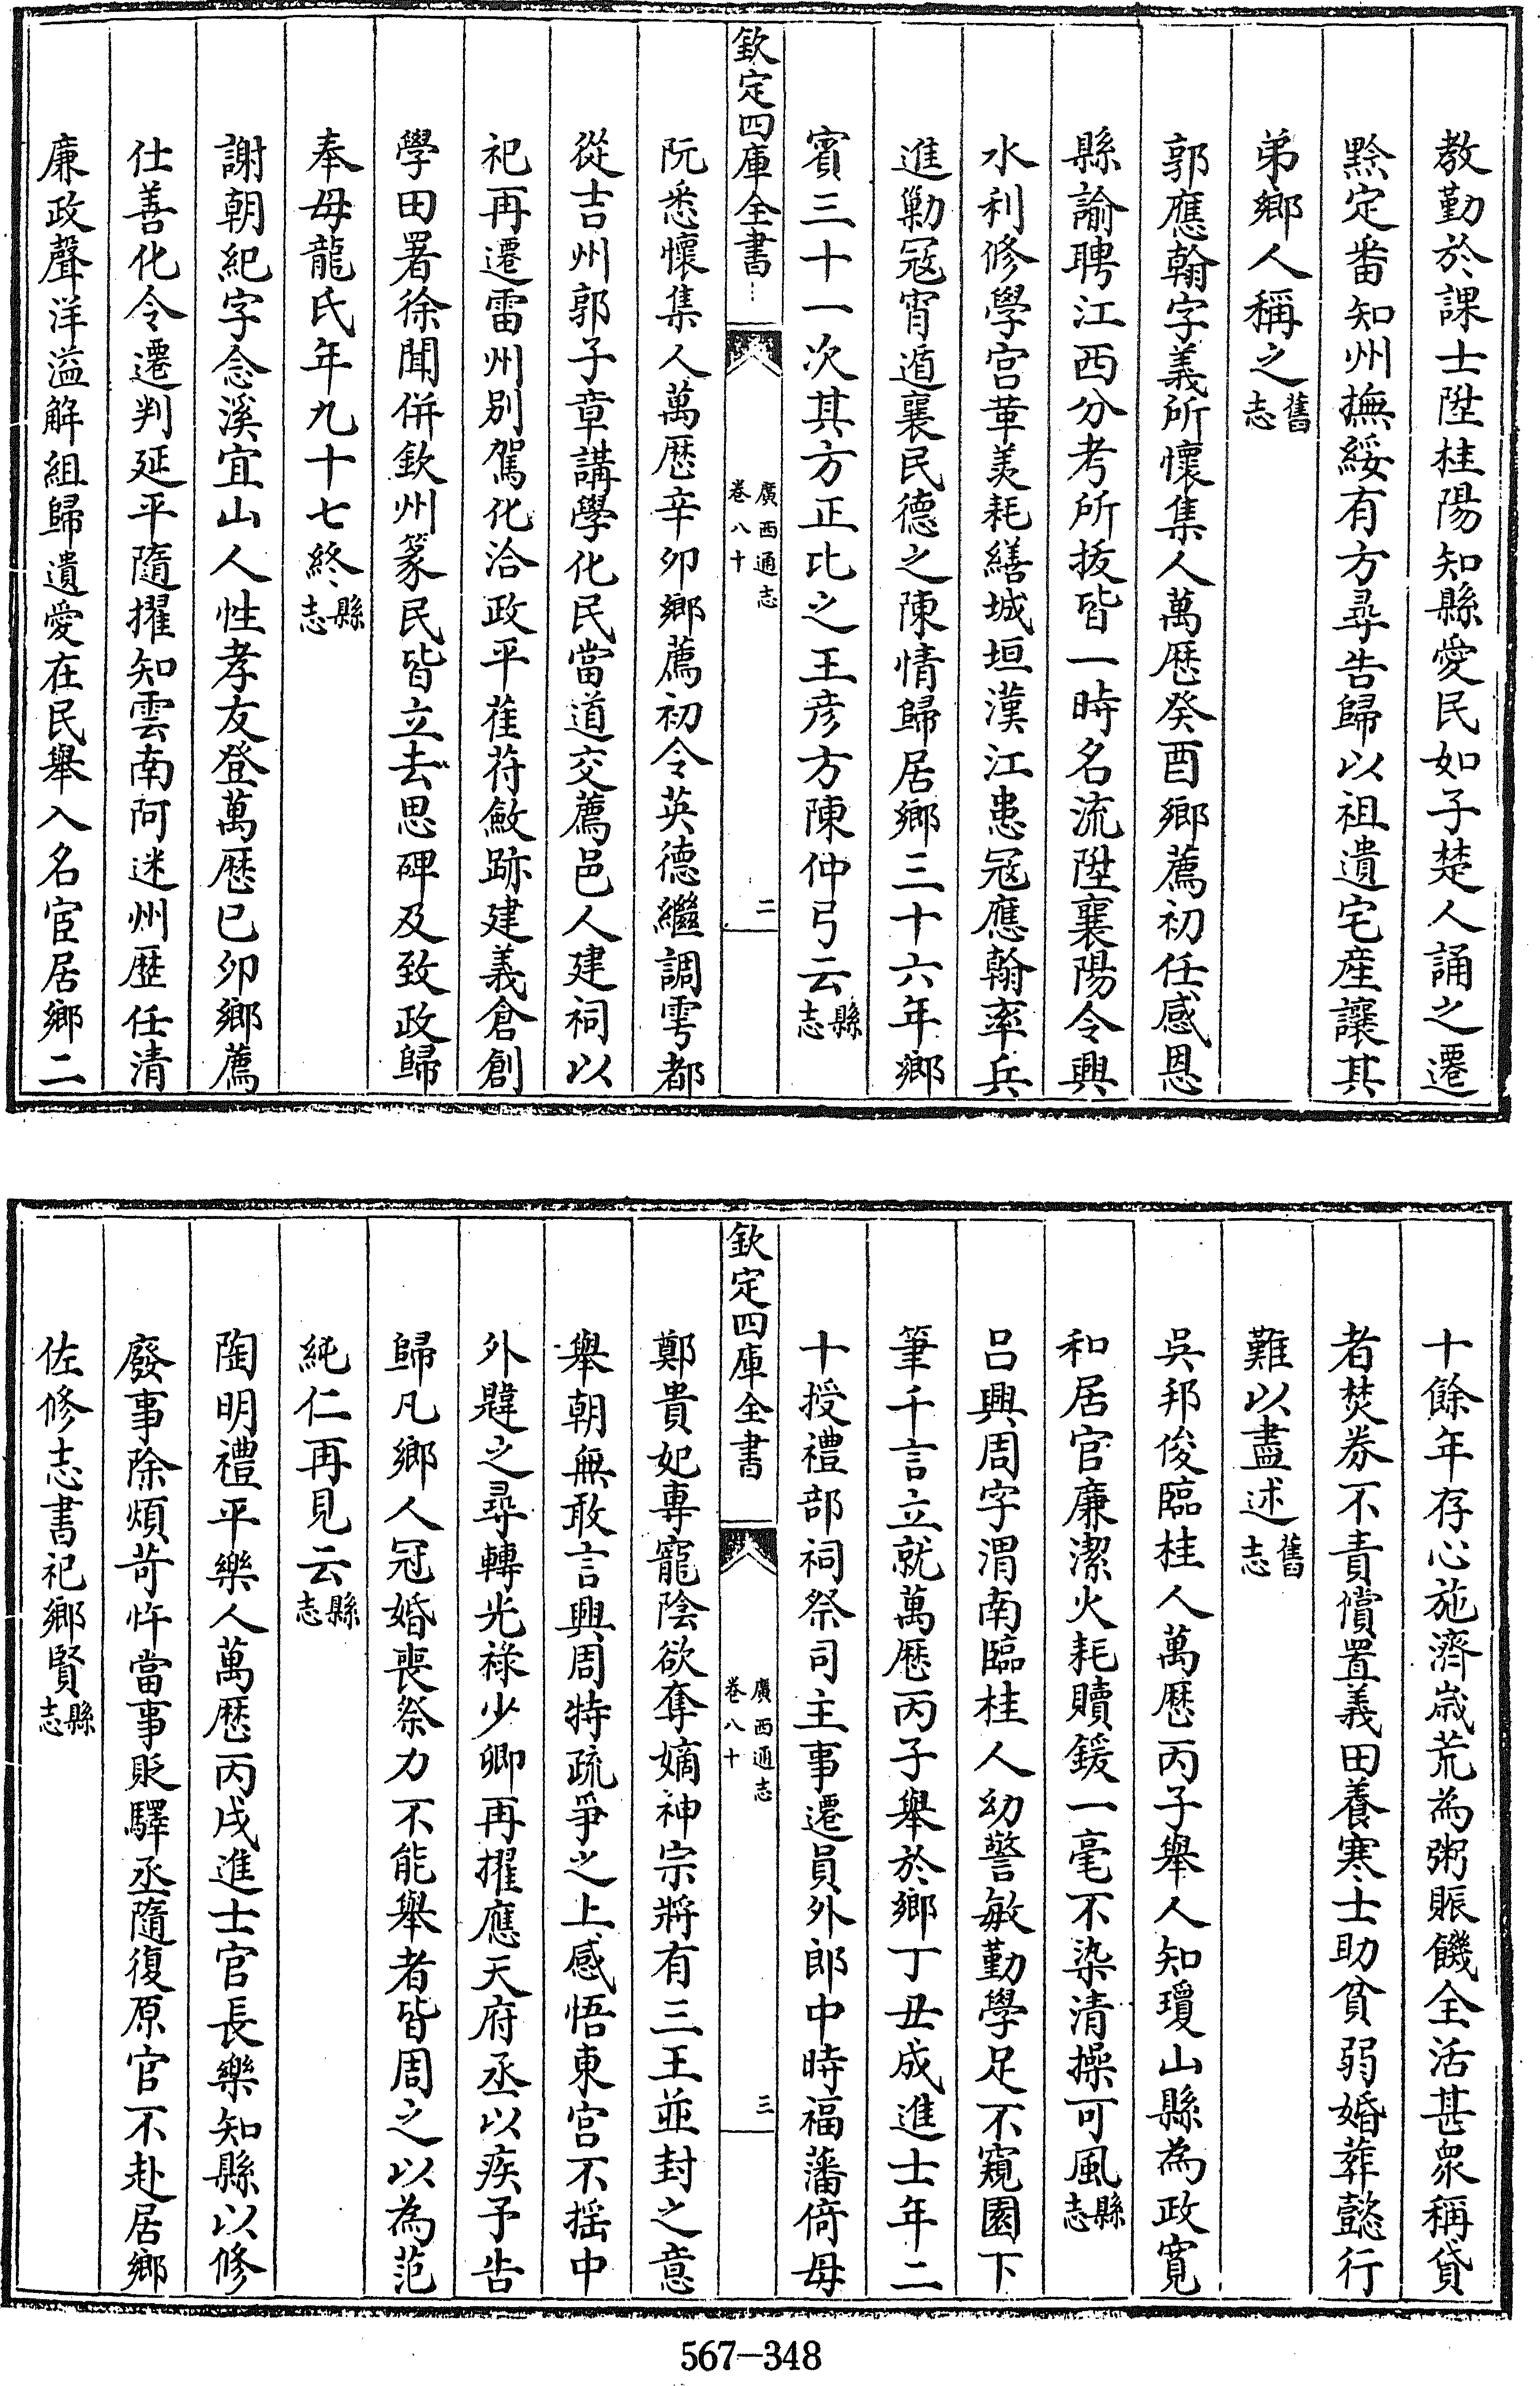 教勤於課士陞桂陽知縣愛民如子楚人誦之遷
黔定番知州撫綏有方尋告歸以祖遺宅産讓其
弟鄉人稱之舊志
郭應翰字義所懷集人萬厯癸酉鄉薦初任感恩
縣諭聘江西分考所拔皆一時名流陞襄陽令興
水利修學宫革羡耗繕城垣漢江患宼應翰率兵
進勦宼宵遁襄民德之陳情歸居鄉三十六年鄉
賓三十一次其方正比之王彦方陳仲弓云縣志
欽定四庫全書
廣西通志
卷八十
二
阮悉懷集人萬厯辛卯鄉薦初令英德繼調雩都
從吉州郭子章講學化民當道交薦邑人建祠以
祀再遷雷州别駕化洽政平萑苻斂跡建義倉創
學田署徐聞併欽州篆民皆立去思碑及致政歸
奉母龍氏年九十七終縣志
謝朝紀字念溪宜山人性孝友登萬厯己卯鄉薦
仕善化令遷判延平隨擢知雲南阿迷州歴任清
廉政聲洋溢解組歸遺愛在民舉入名宦居鄉二
十餘年存心施濟嵗荒為粥賑饑全活甚衆稱貸
者焚劵不責償置義田養寒士助貧弱婚葬懿行
難以盡述舊志
吳邦俊臨桂人萬厯丙子舉人知瓊山縣為政寛
和居官廉潔火耗贖鍰一毫不染清操可風縣志
吕興周字渭南臨桂人幼警敏勤學足不窺園下
筆千言立就萬厯丙子舉於鄉丁丑成進士年二
十授禮部祠祭司主事遷員外郎中時福藩倚母
欽定四庫全書
廣西通志
卷八十
三
鄭貴妃專寵陰欲奪嫡神宗將有三王並封之意
舉朝無敢言興周特疏爭之上感悟東宫不揺中
外韙之尋轉光禄少卿再擢應天府丞以疾予告
歸凡鄉人冠婚喪祭力不能舉者皆周之以為范
純仁再見云縣志
陶明禮平樂人萬厯丙戌進士官長樂知縣以修
廢事除煩苛忤當事貶驛丞隨復原官不赴居鄉
佐修志書祀鄉賢縣志
567-348